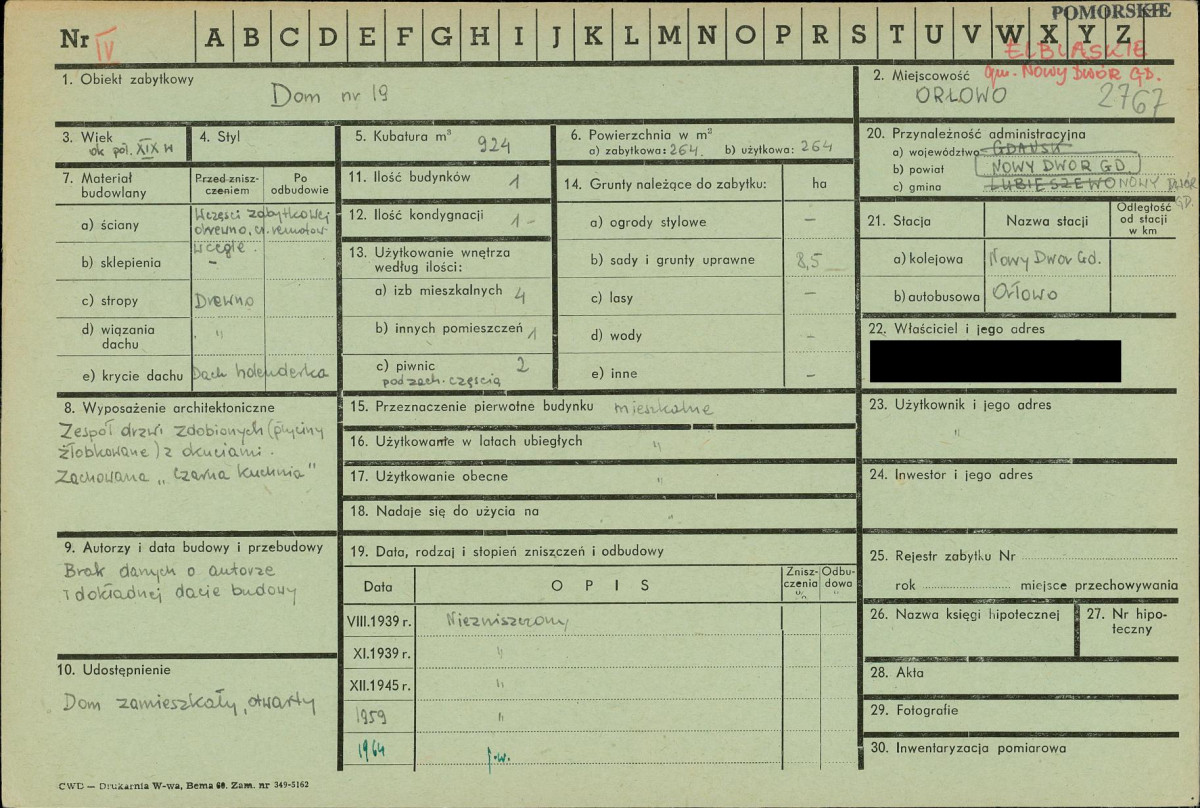 POMORSKIE
Nr IV A B C D E F G H I J K L M N O P R S T U V W X Y Z
ELBLĄSKIE
gm. NOWY DWÓR GD.
1. Obiekt zabytkowy
Dom nr 19
2. Miejscowość
ORŁOWO
2767
3. Wiek
ok poł. XIX w
4. Styl
5. Kubatura m³ 924
6. Powierzchnia w m²
a) zabytkowa: 264. b) użytkowa: 264
7. Materiał budowlany
Przed znisz-
czeniem
Po
odbudowie
a) ściany
W części zabytkowej
drewno, cz. remontow.
w cegle.
b) sklepienia -
c) stropy Drewno
d) wiązania
dachu "
e) krycie dachu Dach holenderka
8. Wyposażenie architektoniczne
Zespół drzwi zdobionych (płyciny
żłobkowane) z okuciami.
Zachowana „czarna kuchnia"
9. Autorzy i data budowy i przebudowy
Brak danych o autorze
i dokładnej dacie budowy
10. Udostępnienie
Dom zamieszkały, otwarty
11. Ilość budynków 1
12. Ilość kondygnacji 1 -
13. Użytkowanie wnętrza
według ilości:
a) izb mieszkalnych 4
b) innych pomieszczeń 1
c) piwnic 2
pod zach. częścią
14. Grunty należące do zabytku: ha
a) ogrody stylowe —
b) sady i grunty uprawne 8,5 —
c) lasy —
d) wody -
e) inne -
15. Przeznaczenie pierwotne budynku mieszkalne
16. Użytkowanie w latach ubiegłych "
17. Użytkowanie obecne "
18. Nadaje się do użycia na "
19. Data, rodzaj i stopień zniszczeń i odbudowy
Data OPIS Znisz-
czenia
% Odbu-
dowa
%
VIII.1939 r. Niezniszczony
XI.1939 r. "
XII.1945 r. "
1959 "
1964 j.w.
20. Przynależność administracyjna
a) województwo GDAŃSK
b) powiat NOWY DWOR GD.
c) gmina LUBIESZEWO NOWY DWÓR
GD.
21. Stacja Nazwa stacji Odległość
od stacji
w km
a) kolejowa Nowy Dwor Gd.
b) autobusowa Orłowo
22. Właściciel i jego adres
23. Użytkownik i jego adres
"
24. Inwestor i jego adres
25. Rejestr zabytku Nr
rok miejsce przechowywania
26. Nazwa księgi hipotecznej
27. Nr hipo-
teczny
28. Akta
29. Fotografie
30. Inwentaryzacja pomiarowa
CWD — Drukarnia W-wa, Bema 60. Zam. nr 349-5162